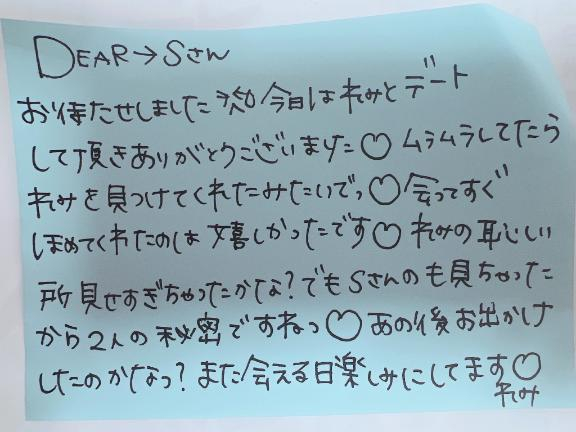 DEAR→Sさん
お待たせしました 今日はれみとデート
して頂きありがとうございました♡ ムラムラしてたら
れみを見つけてくれたみたいでっ♡会ってすぐ
ほめてくれたのは嬉しかったです♡れみの恥しい
所見せすぎちゃったかな?でもSさんのも見ちゃった
から2人の秘密ですねっ♡あの後お出かけ
したのかなっ?また会える日楽しみにしてます♡
れみ